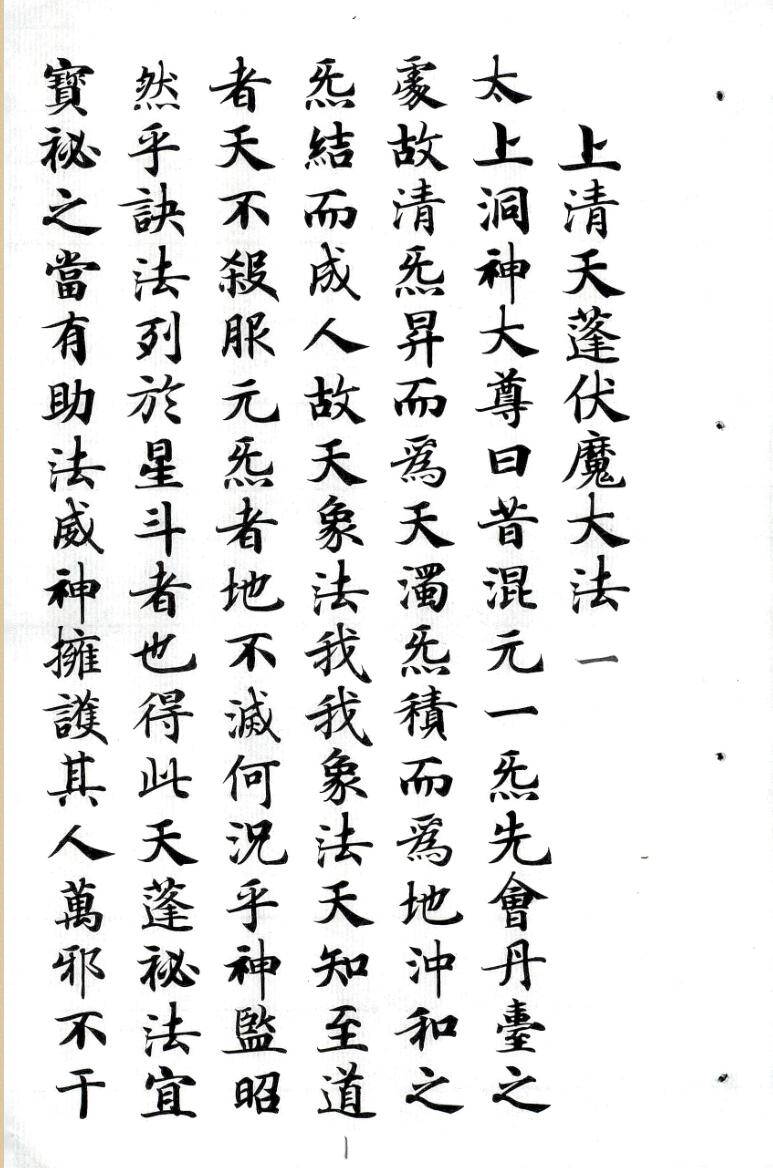 上清天蓬伏魔大法 一
太上洞神大尊曰昔混元一炁先會丹臺之
䖏故清炁昇而爲天濁炁積而爲地沖和之
炁結而成人故天象法我我象法天知至道
者天不殺服元炁者地不滅何況乎神監昭
然乎訣法列於星斗者也得此天蓬秘法宜
寶秘之當有助法威神擁護其人萬邪不干